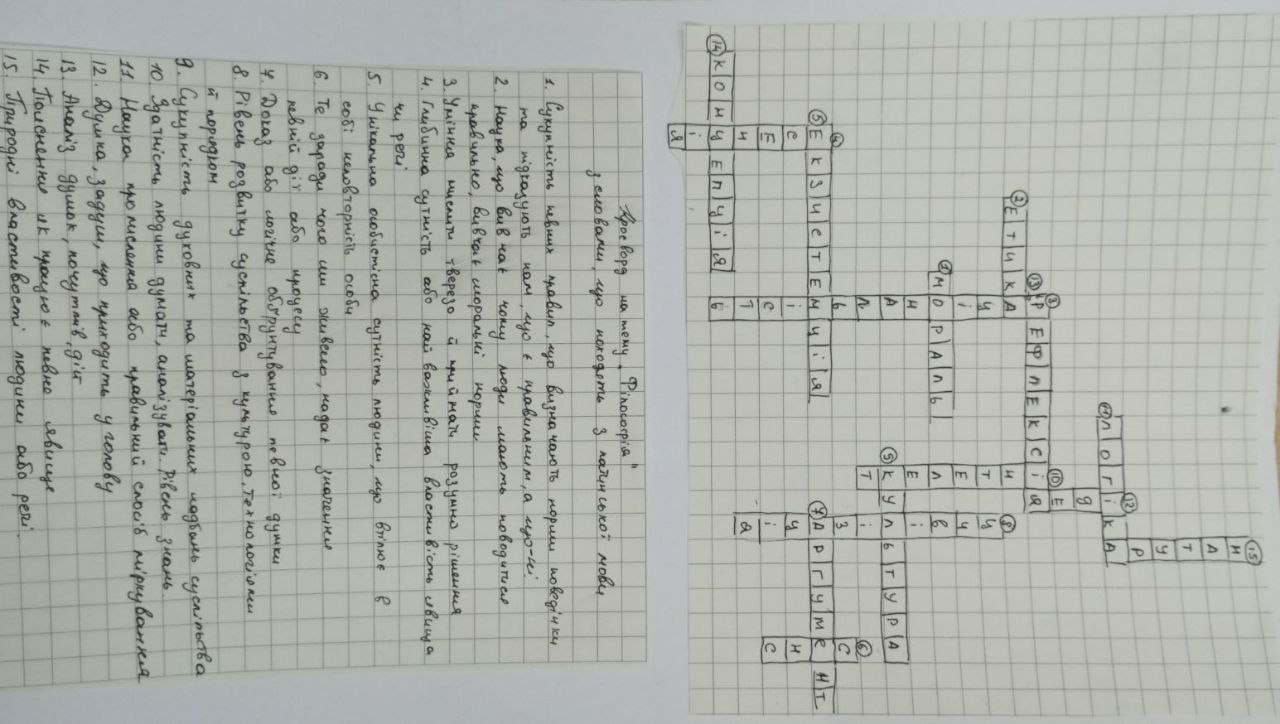 Кросворд на тему „Філософія"
з словами, що походять з латинської мови
1. Сукупність певних правил, що визначають норми поведінки
та підказують нам, що є правильним, а що-ні.
2. Наука, що вивчає чому люди мають поводитися
правильно, вивчає моральні норми
3. Уміння мислити тверезо й приймати розумно рішення
4. Глибинна сутність або найважливіша властивість явища
чи речі
5. Унікальна особистісна сутність людини, що втілює в
собі неповторність особи
6. Те заради чого ми живемо, надає значення
певній дії або процесу
7. Доказ або логічне обґрунтування певної думки
8. Рівень розвитку суспільства з культурою, технологіями
й порядком
9. Сукупність духовних та матеріальних надбань суспільства
10 Здатність людини думати, аналізувати. Рівень знань
11 Наука про мислення або правильний спосіб міркування
12. Думка, задум, що приходить у голову
13. Аналіз думок, почуттів, дій
14 Пояснення як працює певне явище
15. Природні властивості людини або речі.
15 НАТУРА
11 ЛОГіКА
12 іДЕЯ
13 РЕФЛЕКСіЯ
3 РАЦіОНАЛЬНіСТЬ
10 іНТЕЛЕКТ
2 ЕТИКА
8 ЦИВіЛіЗАЦіЯ
1 МОРАЛЬ
9 КУЛЬТУРА
6 СЕНС
4 ЕСЕНЦіЯ
5 ЕКЗИСТЕНЦіЯ
7 АРГУМЕНТ
14 КОНЦЕПЦіЯ